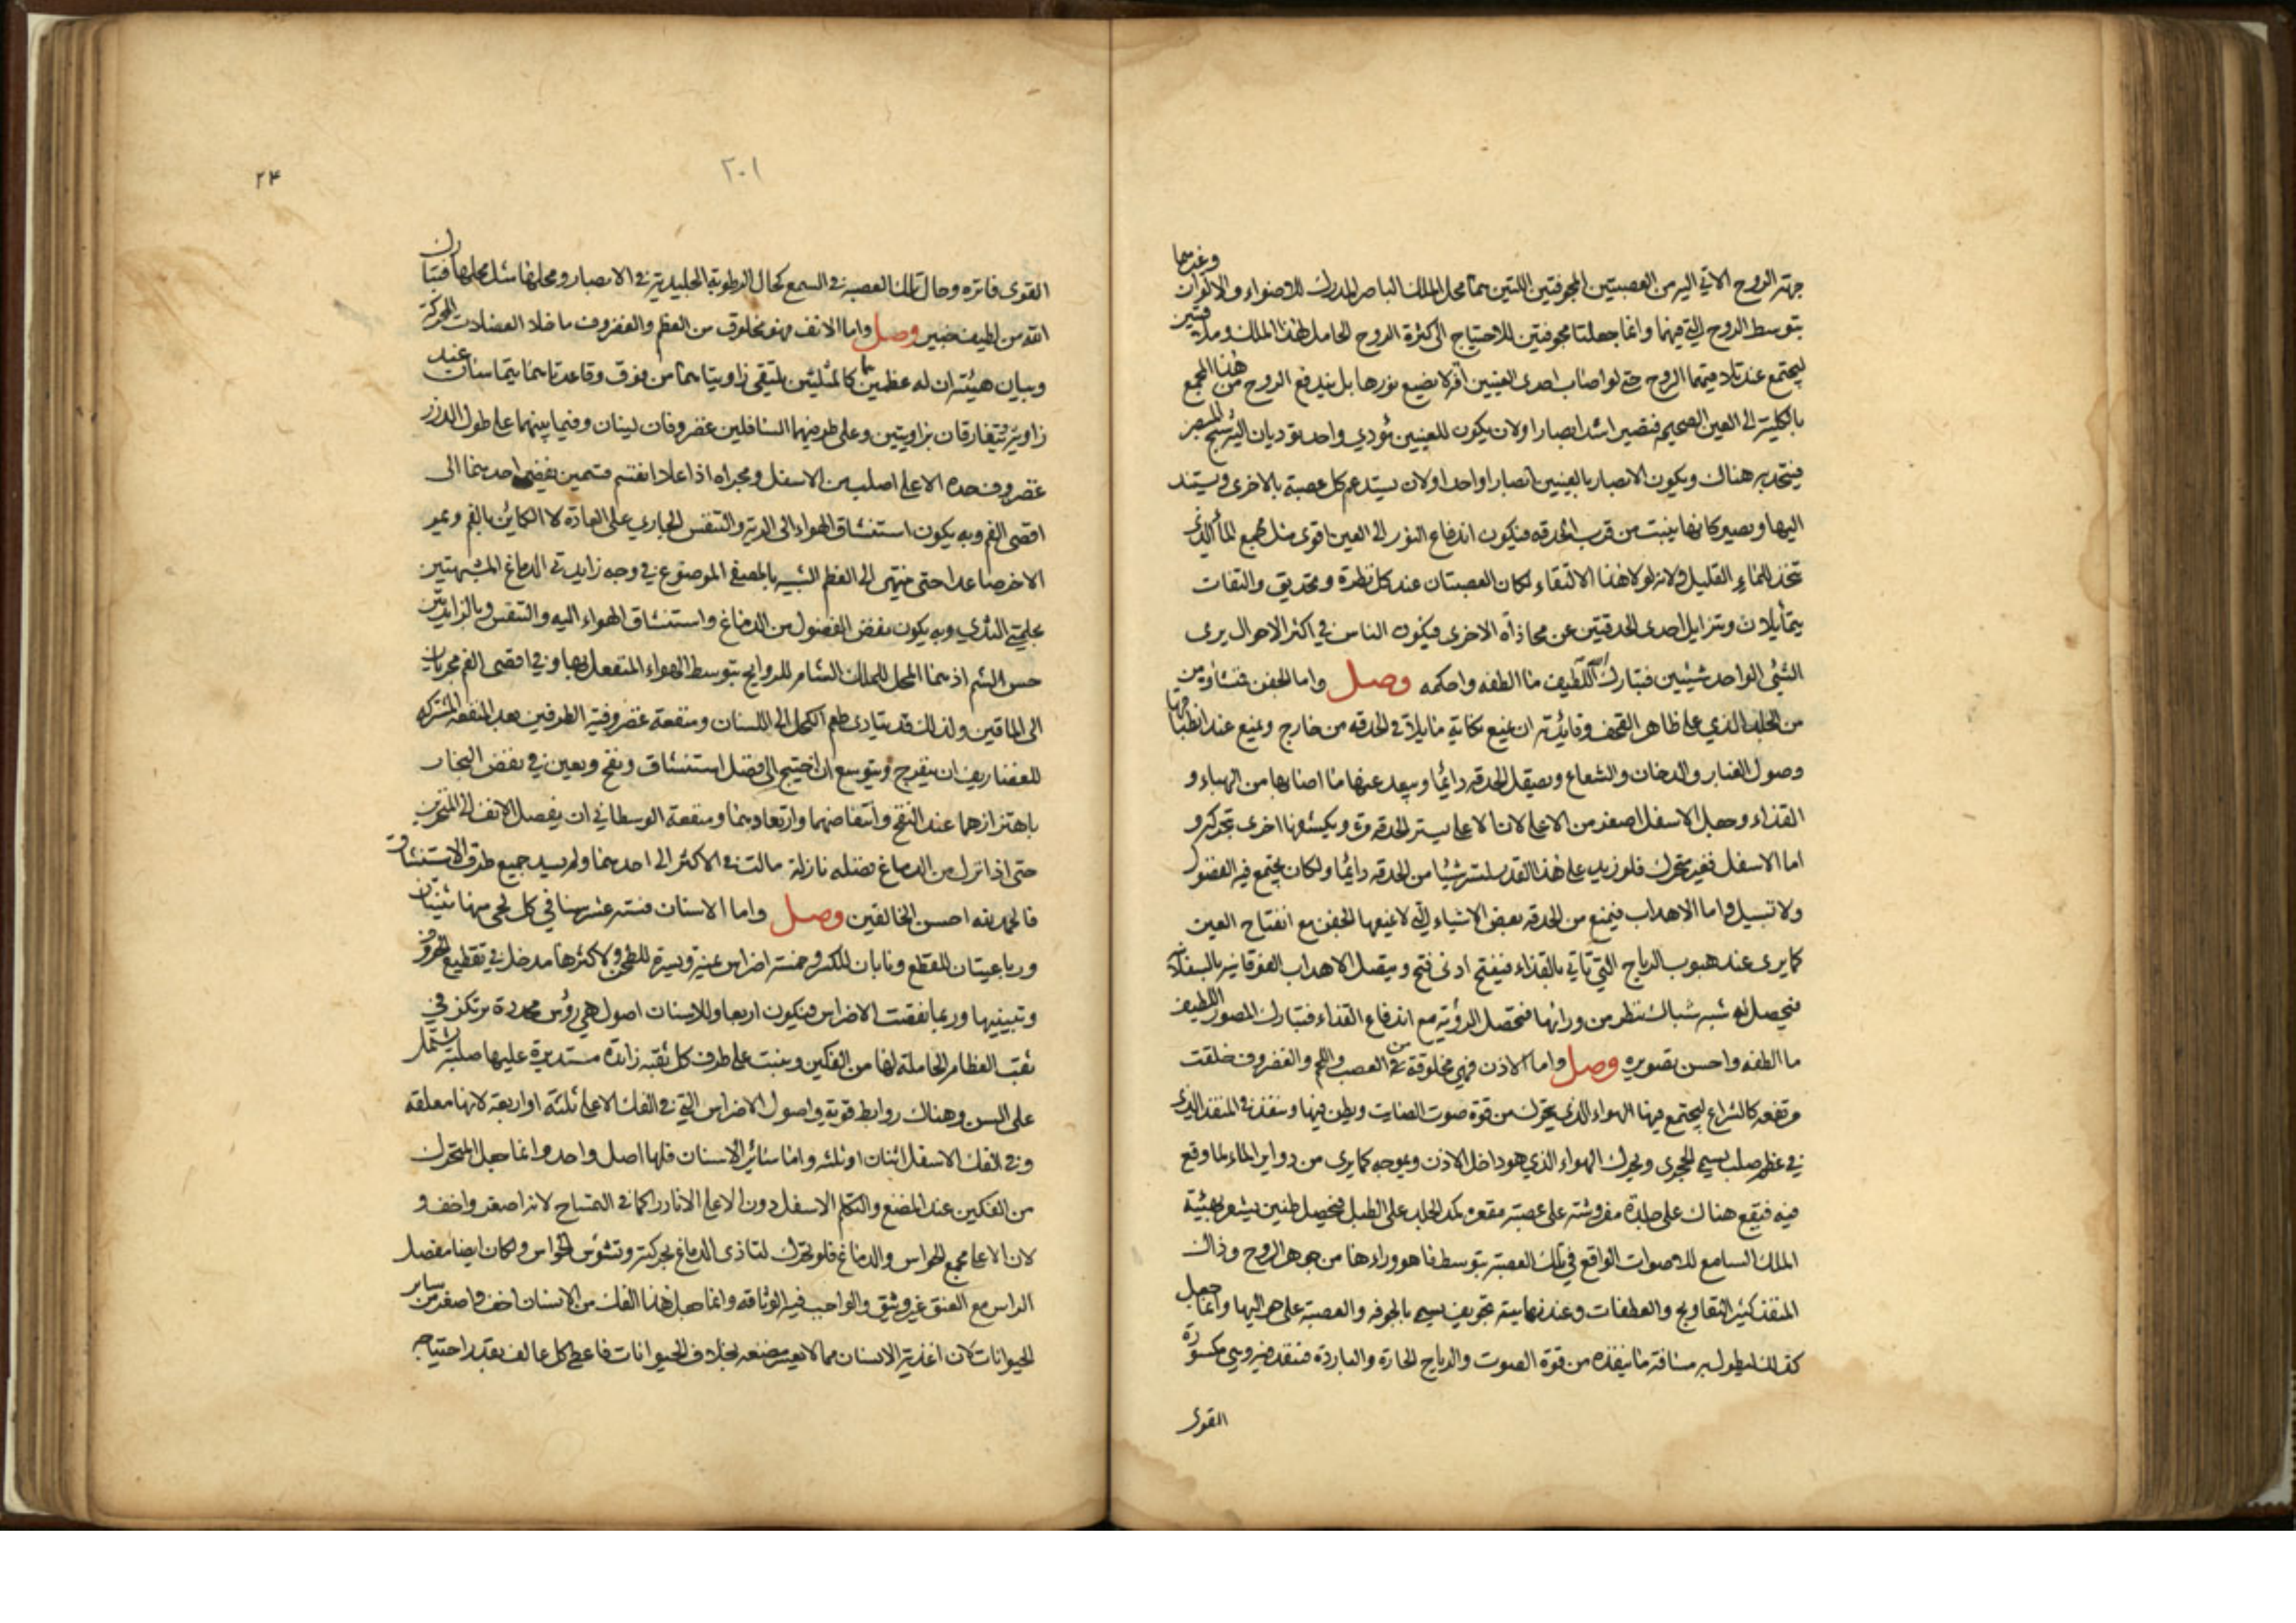 جهة الروح الآتي اليه من العصبتين المجوفتين اللتين هما محل الملك الباصر المدرك للاضواء والالوان وغيرهما
بتوسط الروح التي فيهما وانما جعلتا مجوفتين للاحتياج الى كثرة الروح الحامل لهذا الملك و
ليجتمع عند تلاقيهما الروح حتى لو اصاب احدى العينين آفة لا يضيع نورها بل يندفع الروح من هذا المجمع
بالكلية الى العين الصحيحة فتصير اشد ابصارا ولان يكون للعينين مؤدي واحد تؤديان اليه شبح المبصر
فيتحد به هناك ويكون الابصار بالعينين ابصارا واحدا ولان يستدعم كل عصبة بالاخرى ويستند
اليها ويصير كانها ينبت من قرب الحدقه فيكون اندفاع النور الى العين اقوى مثل مجمع الماء الذي
تتخذ للماء القليل ولانه لولا هذا الالتقاء لكان العصبتان عند كل نظرة وتحديق والتفات
يتمايلان ويتزايل احدى الحدقتين عن محاذاة الاخرى فيكون الناس في اكثر الاحوال يرى
الشئ الواحد شيئين فتبارك الله اللطيف ما الطفه واحكمه وصل واما الجفن فمنشأه من
من الجلد الذي على ظاهر القحف وفايدته ان يمنع نكاية ما يلاقي الحدقه من خارج ويمنع عند انطباقها
وصول الغبار والدخان والشعاع ويصقل الحدقه دائما ويبعد عنها ما اصابها من الهباء و
القذاء وجعل الاسفل اصغر من الاعلى لان الاعلى يستر الحدقه مرة ويكشفها اخرى بتحركه و
اما الاسفل فغير متحرك فلو زيد على هذا القدر لستر شيئا من الحدقه دائما ولكان يجتمع فيه الفضول
ولا تسيل واما الاهداب فيمنع من الحدقه بعض الاشياء التي لا يمنعها الجفن مع انفتاح العين
كما يرى عند هبوب الرياح التي تاتي بالقذاء فيفتح ادنى فتح ويتصل الاهداب الفوقانيه بالسفلانيه
فيحصل له شبه شباك ينظر من ورائها فتحصل الرؤية مع اندفاع القذاء فتبارك المصور اللطيف
ما الطفه واحسن تصويره وصل واما الاذن فهي مخلوقة من العصب واللحم والغضروف خلقت
مرتفعه كالشراع ليجتمع فيها الهواء الذي يتحرك من قوة صوت الصايت ويطن فيها وينفذ في المنفذ الذي
في عظم صلب يسمى الحجري ويحرك الهواء الذي هو داخل الاذن ويموجه كما يرى من دواير الماء لما وقع
فيه فيقع هناك على جلدة مفروشة على عصبة مقعرة كمد الجلد على الطبل فيحصل طنين يشعر بهيئة
الملك السامع للاصوات الواقع في تلك العصبة بتوسط ما هو وراءها من جوهر الروح وذلك
المنفذ كثير التعاويج والعطفات وعند نهايته تجويف يسمى بالجوفه والعصبة على حواليها وانما جعل
كذلك ليطول به مسافة ما ينفذه من قوة الصوت والرياح الحارة والباردة فينفذ فيه وهي مكسورة
القوى
٢٠١
٢٤
القوى فاتره وحال تلك العصبة في السمع كحال الرطوبة الجليدية في الابصار ومحلها مثل محلها فتبارك
الله من لطيف خبير وصل واما الانف فهو مخلوق من العظم والغضروف ما خلا العضلات المحركة
وبيان هيئته ان له عظمين هما كالمثلثين يلتقي زاويتاهما من فوق وقاعدتاهما يتماسان عند
زاوية ويتفارقان بزاويتين وعلى طرفيهما السافلين غضروفان لينان وفيما بينهما على طول الدرز
غضروف حده الاعلى اصلب من الاسفل ومجراه اذا علا انقسم قسمين يفضي احدهما الى
اقصى الفم وبه يكون استنشاق الهواء الى الرية والتنفس الجاري على العادة لا الكاين بالفم ويمر
الاخر صاعدا حتى ينتهي الى العظم الشبيه بالمصفى الموضوع في وجه زايدتي الدماغ المشبهتين
بحلمتي الثدي وبه يكون نفض الفضول من الدماغ واستنشاق الهواء اليه والتنفس وبالزايدتين
حس الشم اذ هما المحل للملك الشام للروايح بتوسط الهواء المنفعل بها وفي اقصى الفم مجريان
الى الماقين ولذلك قد يتادى طعم الكحل الى اللسان ومنفعة غضروفية الطرفين بعد المنفعه المشتركه
للغضاريف ان ينفرج ويتوسع ان احتيج الى فضل استنشاق ونفخ ويعين في نفض البخار
باهتزازهما عند النفخ وانتفاضهما وارتعادهما ومنفعة الوسطاني ان يفصل الانف الى المنخرين
حتى اذا نزل من الدماغ فضله نازلة مالت في الاكثر الى احدهما ولم يسد جميع طرق الاستنشاق
فالحمد لله احسن الخالقين وصل واما الاسنان فستة عشر سنا في كل لحى منها ثنيتان
ورباعيتان للقطع ونابان للكسر وخمسة اضراس يمنة ويسرة للطحن ولاكثرها مدخل في تقطيع الحروف
وتبيينها وربما نقصت الاضراس فيكون اربعا وللاسنان اصول هي رؤس محددة يرتكز في
ثقب العظام الحاملة لها من الفكين وينبت على طرف كل ثقبه زائدة مستديرة عليها صلبة يشتمل
على السن وهناك روابط قوية واصول الاضراس التي في الفك الاعلى ثلثه او اربعة لانها معلقه
وفي الفك الاسفل اثنان او ثلثه واما سائر الاسنان فلها اصل واحد وانما جعل المتحرك
من الفكين عند المضغ والتكلم الاسفل دون الاعلى الا نادرا كما في التمساح لانه اصغر واخف و
لان الاعلى مجمع الحواس والدماغ فلو تحرك لتاذى الدماغ بحركته وتشوش الحواس ولكان ايضا مفصل
الراس مع العنق غير وثيق والواجب فيه الوثاقه وانما جعل هذا الفك من الانسان اخف واصغر من ساير
الحيوانات لان اغذية الانسان مما لا يعسر مضغه بخلاف الحيوانات فاعطي كل عالف بقدر احتياجه